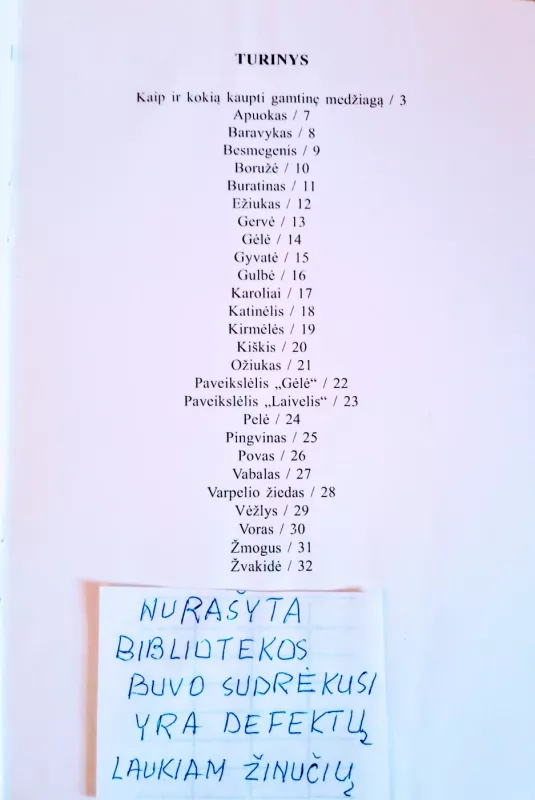 TURINYS
Kaip ir kokią kaupti gamtinę medžiagą / 3
Apuokas / 7
Baravykas / 8
Besmegenis / 9
Boružė / 10
Buratinas / 11
Ežiukas / 12
Gervė / 13
Gėlė / 14
Gyvatė / 15
Gulbė / 16
Karoliai / 17
Katinėlis / 18
Kirmėlės / 19
Kiškis / 20
Ožiukas / 21
Paveikslėlis „Gėlė“ / 22
Paveikslėlis „Laivelis“ / 23
Pelė / 24
Pingvinas / 25
Povas / 26
Vabalas / 27
Varpelio žiedas / 28
Vėžlys / 29
Voras / 30
Žmogus / 31
Žvakidė / 32
NURAŠYTA
BIBLIOTEKOS
BUVO SUDRĖKUSI
YRA DEFEKTŲ
LAUKIAM ŽINUČIŲ